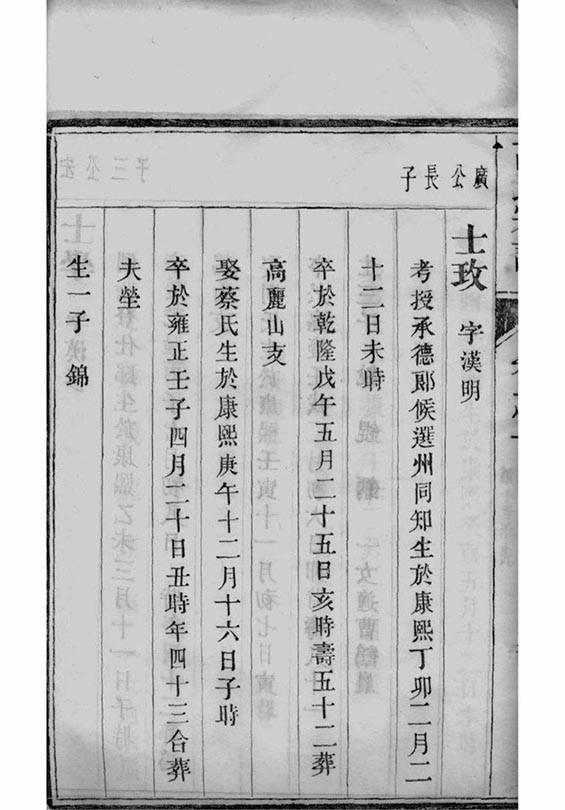 廣公長子
士玫 字漢明
考授承德郞候選州同知生於康熙丁卯二月二
十二日未時
卒於乾隆戊午五月二十五日亥時壽五十二葬
高麗山支
娶蔡氏生於康熙庚午十二月十六日子時
卒於雍正壬子四月二十日丑時年四十三合葬
夫塋
生一子錦